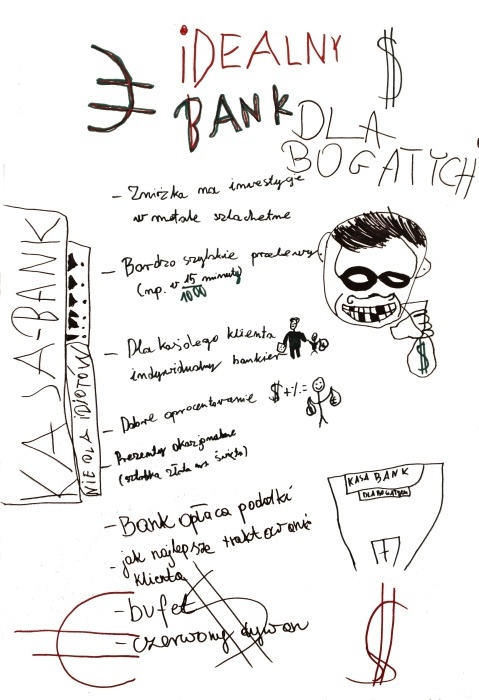 IDEALNY
BANK
DLA
BOGATYCH
- Zniżka na inwestycje
w metale szlachetne
- Bardzo szybkie przelewy
(np. w 15 minuty)
1000
- Dla każdego klienta
indywidualny bankier
- Dobre oprocentowanie $+%=
- Prezenty okazjonalne
(sztabka złota na święta)
- Bank opłaca podatki
- jak najlepsze traktowanie
klienta
- bufet
- czerwony dywan
KASA-BANK
NIE DLA IDIOTÓW !!!!!
$
KASA BANK
DLA BOGATYCH
€
$